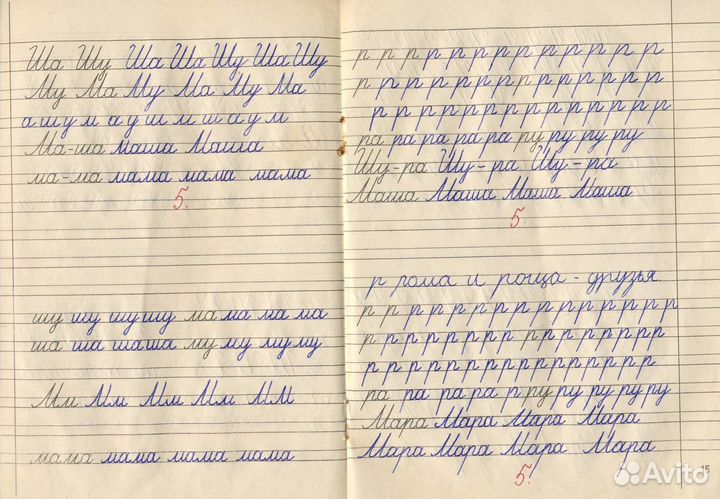 Ша Шу Ша Ша Шу Ша Шу
Му Ма Му Ма Му Ма
а ш у м а у ш м ш а у м
Ма-ша маша Маша
ма-ма мама мама мама
5.
шу шу шу шу ма ма ма ма
ша ша ша ша му му му му
Мм Мм Мм Мм ММ
мама мама мама мама
р р р р р р р р р р р р р
р р р р р р р р р р р р р р
р р р р р р р р р р р р р р
ра ра ра ра ра ру ру ру ру
Шу-ра Шу-ра Шу-ра
Маша Маша Маша Маша
5
р рома и роща - друзья.
р р р р р р р р р р р р р р р
р р р р р р р р р р р р р р р
р р р р р р р р р р р р р р р р
ра ра ра ра р ру ру ру ру ру
Мара Мара Мара Мара
Мара Мара Мара Мара
5.
15
Avito